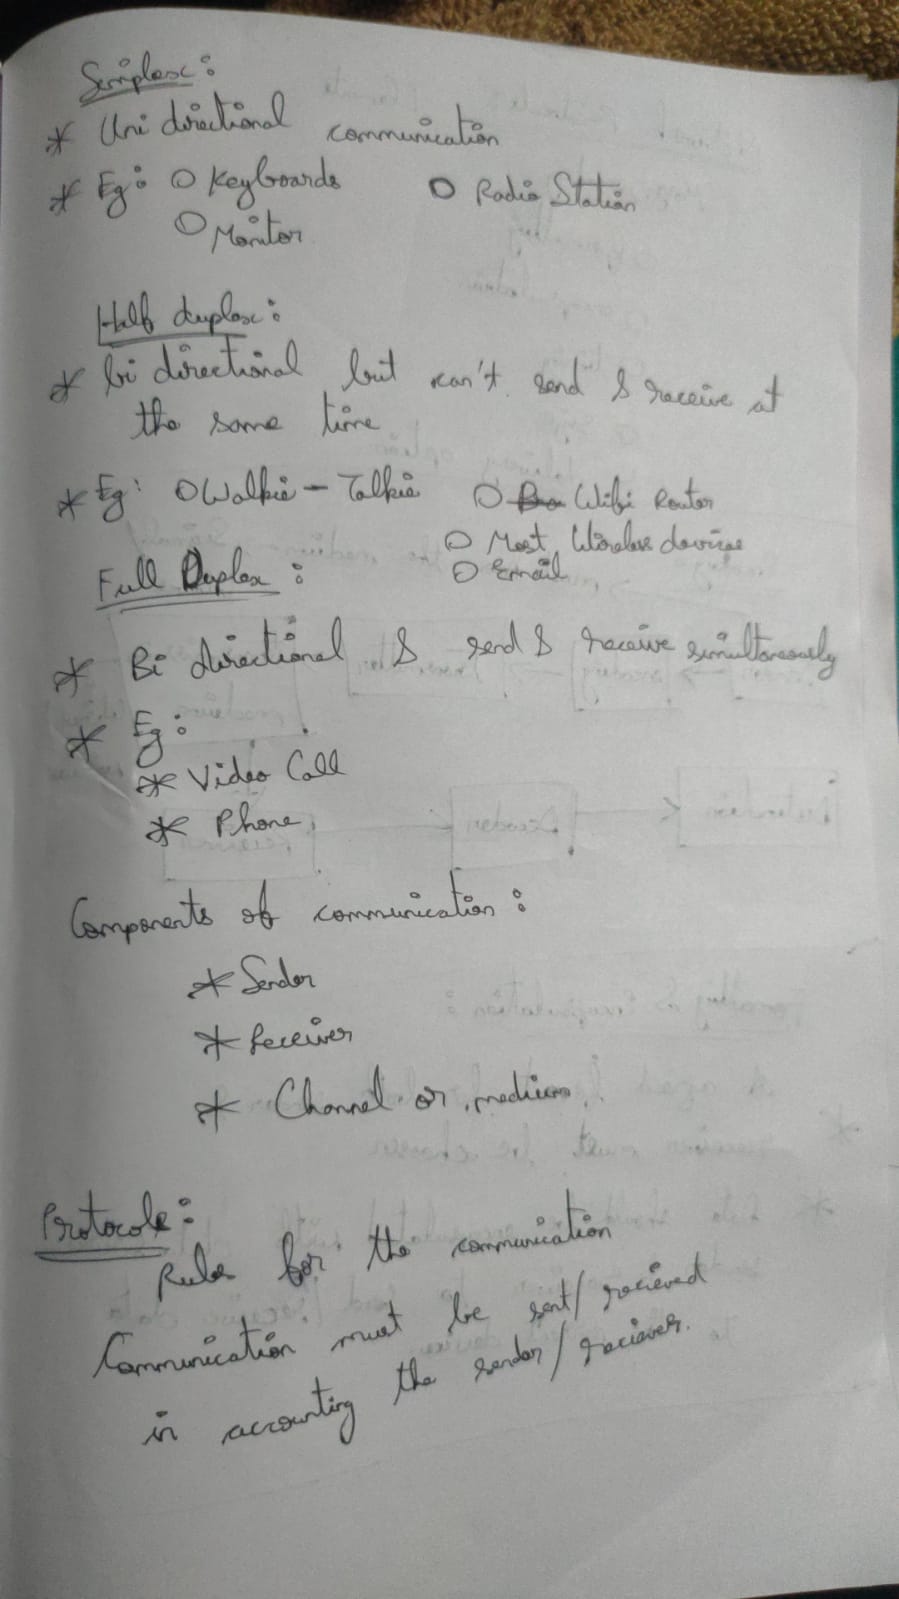 Simplex:
* Uni directional communication
* Eg: O Keyboards O Radio Station
O Monitor
Half duplex:
* bi directional but can't send & receive at
the same time
* Eg: O Walkie - Talkie O Wifi Router
O Most Wireless devices
O Email
Full Duplex:
* Bi directional & send & receive simultaneously
* Eg:
* Video Call
* Phone
Components of communication:
* Sender
* Receiver
* Channel or medium
Protocols:
Rules for the communication
Communication must be sent/recieved
in accounting the sender/reciever.